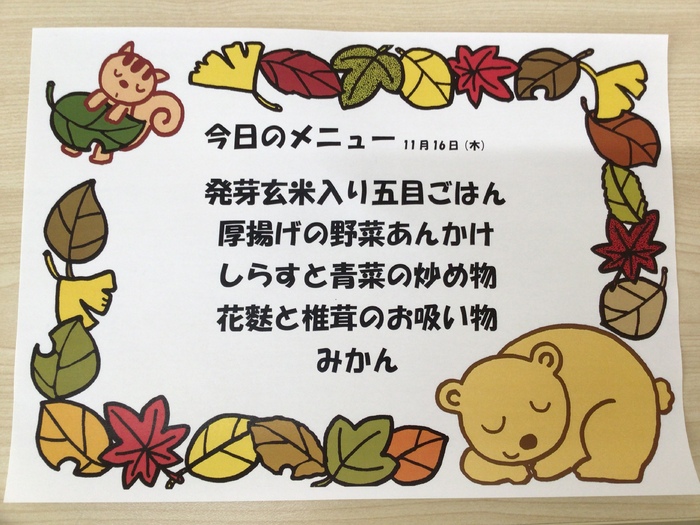 今日のメニュー 11月16日(木)
発芽玄米入り五目ごはん
厚揚げの野菜あんかけ
しらすと青菜の炒め物
花麩と椎茸のお吸い物
みかん